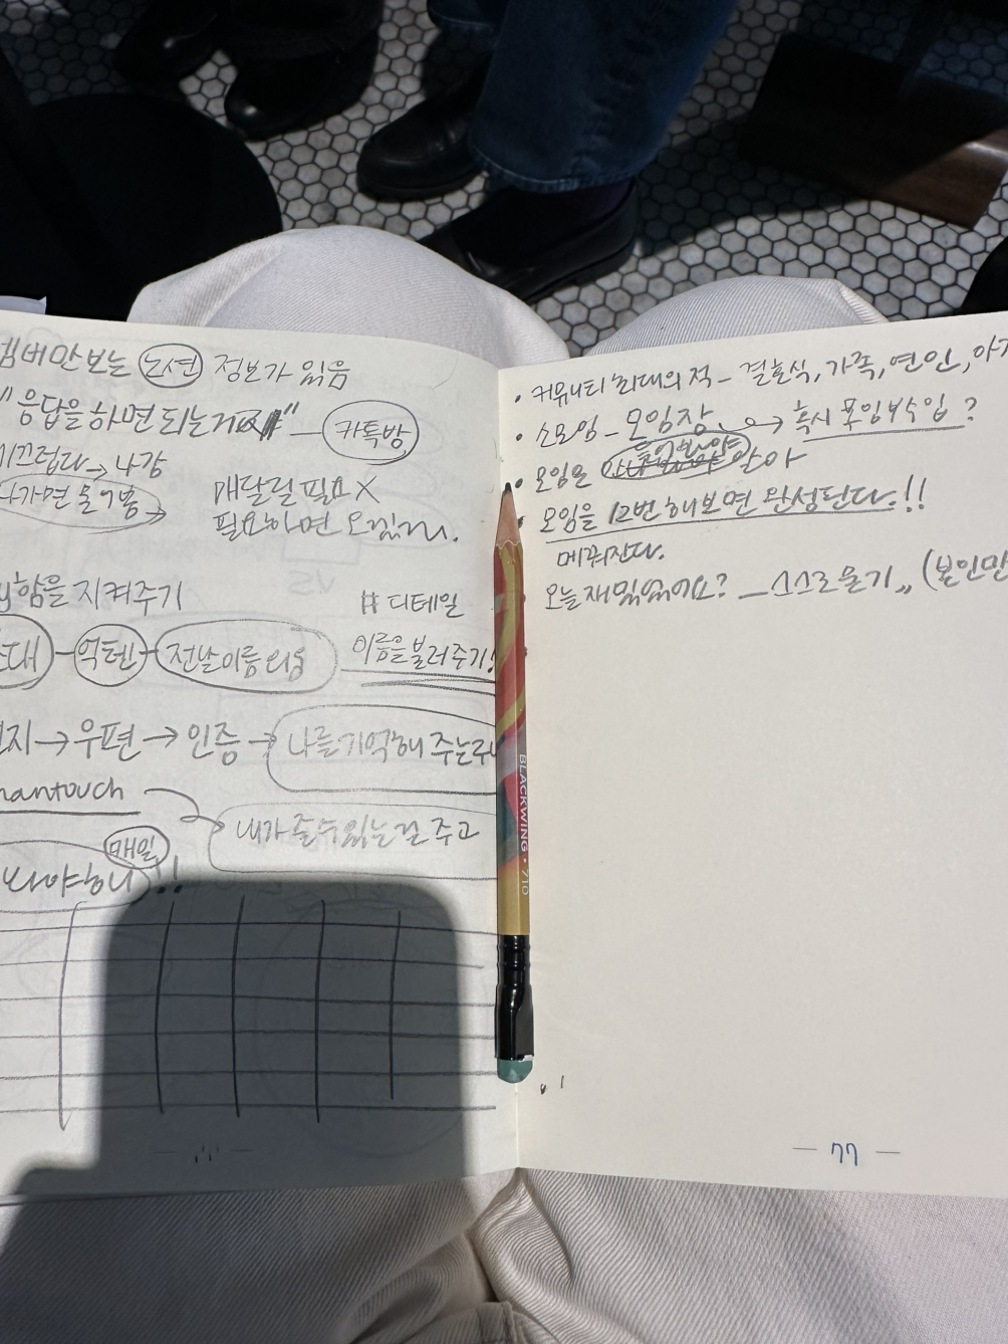 멤버만 보는 노션 정보가 있음
"응답을 하면 되는 "— 카톡방
미끄럽다 → 나감
나가면 줄 →
매달릴 필요 X
필요하면 오겠지.
함을 지켜주기
# 디테일
초대 — 억텐 — 전날 이름 외움
이름을 불러주기!
지 → 우편 → 인증 → 나를 기억해 주는
mantouch
내가 줄 수 있는 걸 주고
매일
봐야해!!
BLACKWING • 710
• 커뮤니티 최대의 적 - 결혼식, 가족, 연인, 아
• 소모임 - 모임장 → 혹시 모임 부수입?
• 모임은 알아
모임을 12번 해보면 완성된다.!!
메꿔진다.
오늘 재밌었어요? — 스스로 묻기,, (본인만
— 77 —